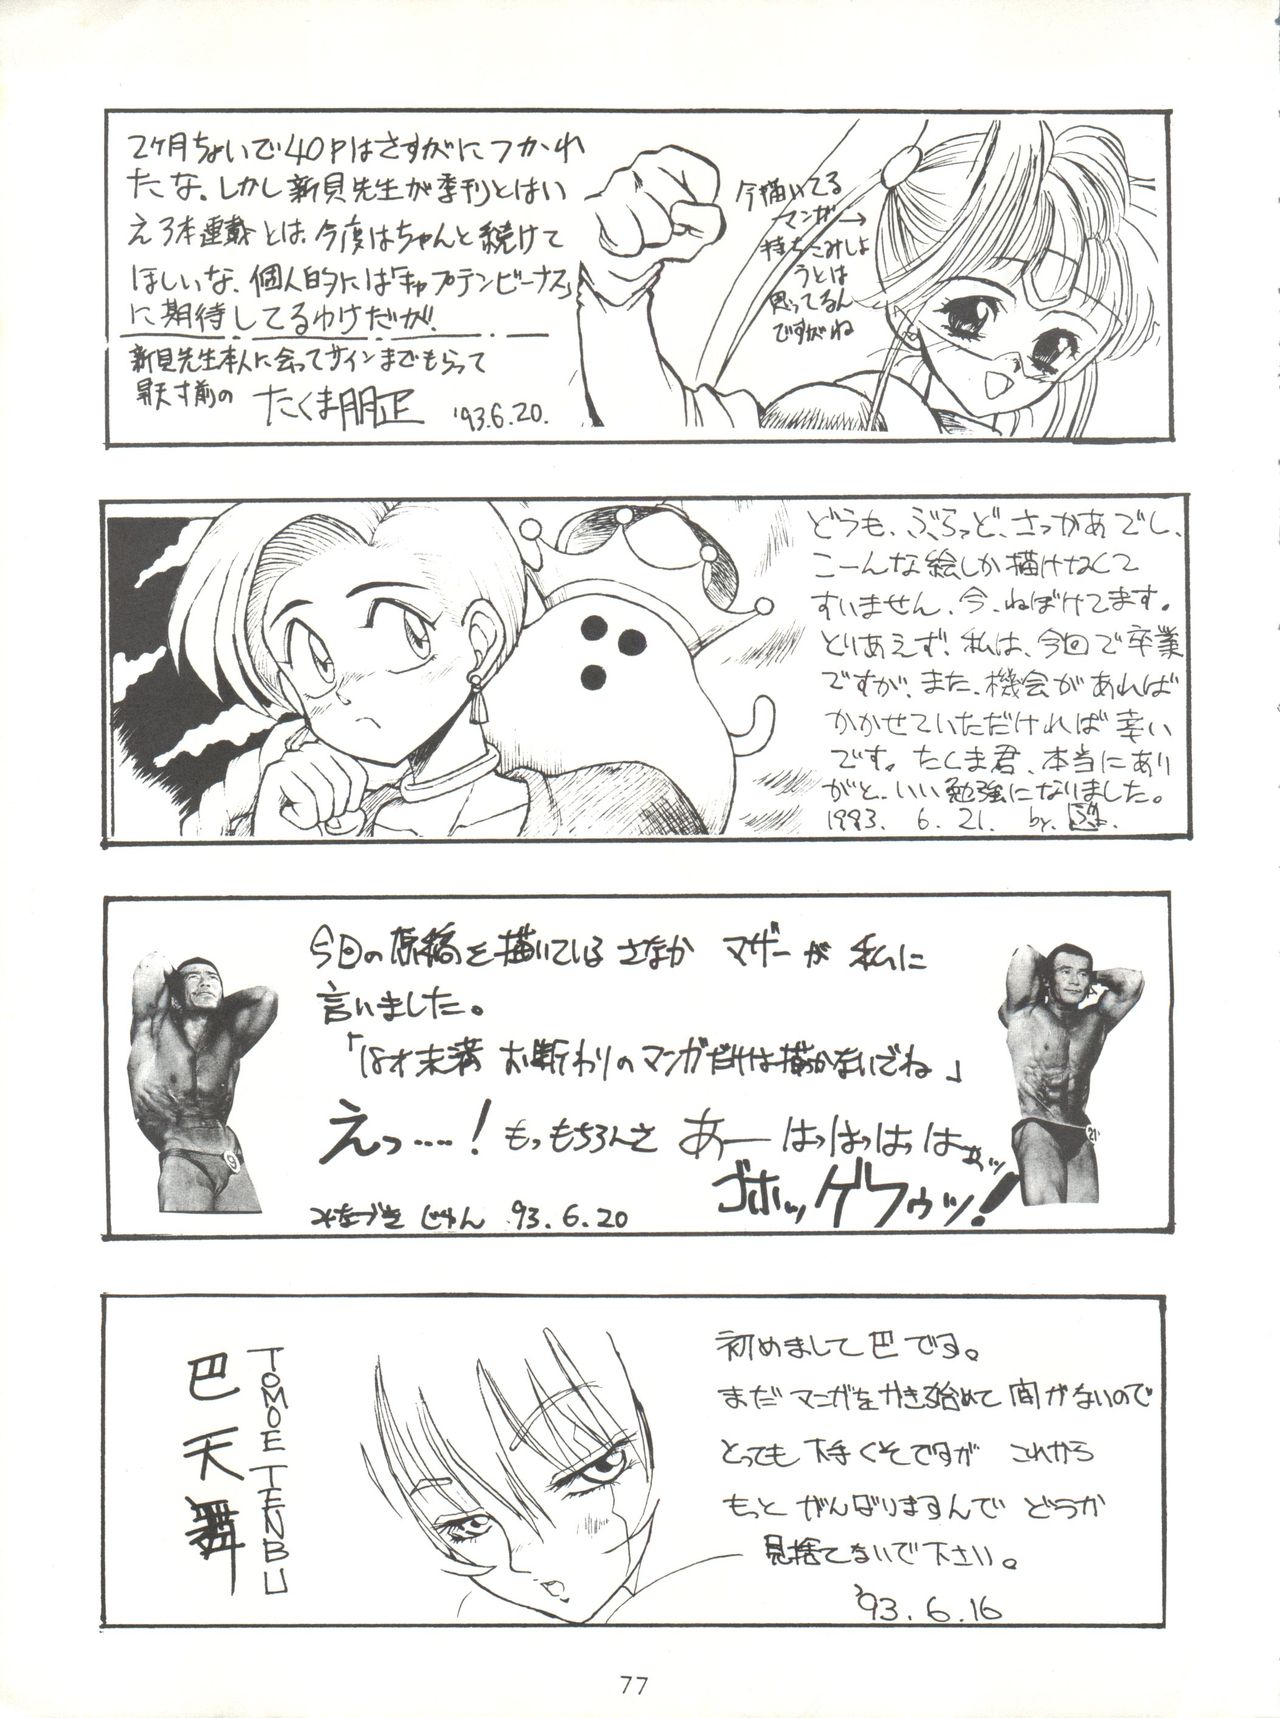 2ヶ月ちょいで40Pはさすがにつかれ
たな。しかし新貝先生が季刊とはい
え3本連載とは、今度はちゃんと続けて
ほしいな、個人的には「キャプテンビーナス」
に期待してるわけだが。
新貝先生本人に会ってサインまでもらって
昇天寸前の たくま朋正 '93.6.20.
今描いてる
マンガ→
持ちこみしよ
うとは
思ってるん
ですがね
どうも、ぶらっど、さっかあでし、
こーんな絵しか描けなくて
すいません、今、ねぼけてます。
とりあえず、私は、今回で卒業
ですが、また、機会があれば
かかせていただければ幸い
です。たくま君、本当にあり
がと、いい勉強になりました。
1993. 6. 21. by.
今回の原稿を描いている さなか マザーが 私に
言いました。
「18才未満 お断わりのマンガだけは描かないでね」
えっ……! もっもちろんさ あーはっはっはっはぁッ
ゴホッゲフゥッ!
みなづき じゅん 93.6.20
巴天舞
TOMOE TENBU
初めまして巴です。
まだ マンガをかき始めて 間がないので
とっても 下手くそですが これから
もっと がんばりますんで どうか
見捨てないで下さい。
'93.6.16
77